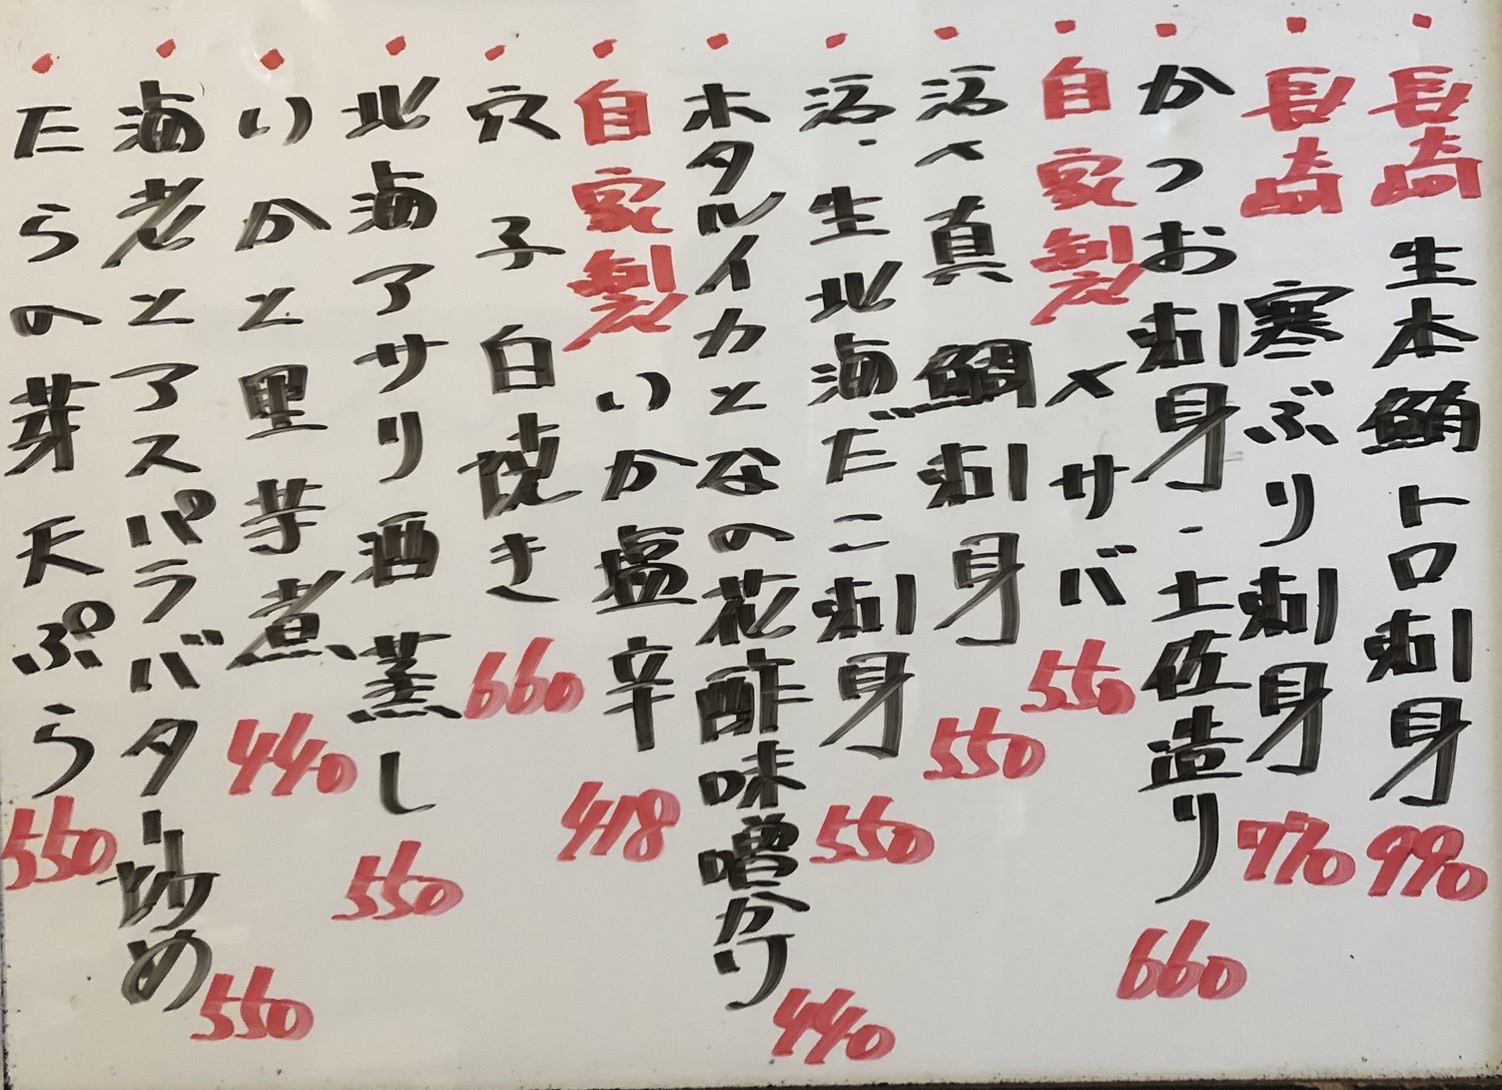 ・長崎 生本鮪トロ刺身 990
・長崎 寒ぶり刺身 770
・かつお刺身・土佐造り 660
・自家製 〆サバ 550
・活〆真鯛刺身 550
・活・生北海だこ刺身 550
・ホタルイカとなの花酢味噌かけ 440
・自家製 いか塩辛 418
・穴子白焼き 660
・北海アサリ酒蒸し 550
・いかと里芋煮 440
・海老とアスパラバター炒め 550
・たらの芽天ぷら 550